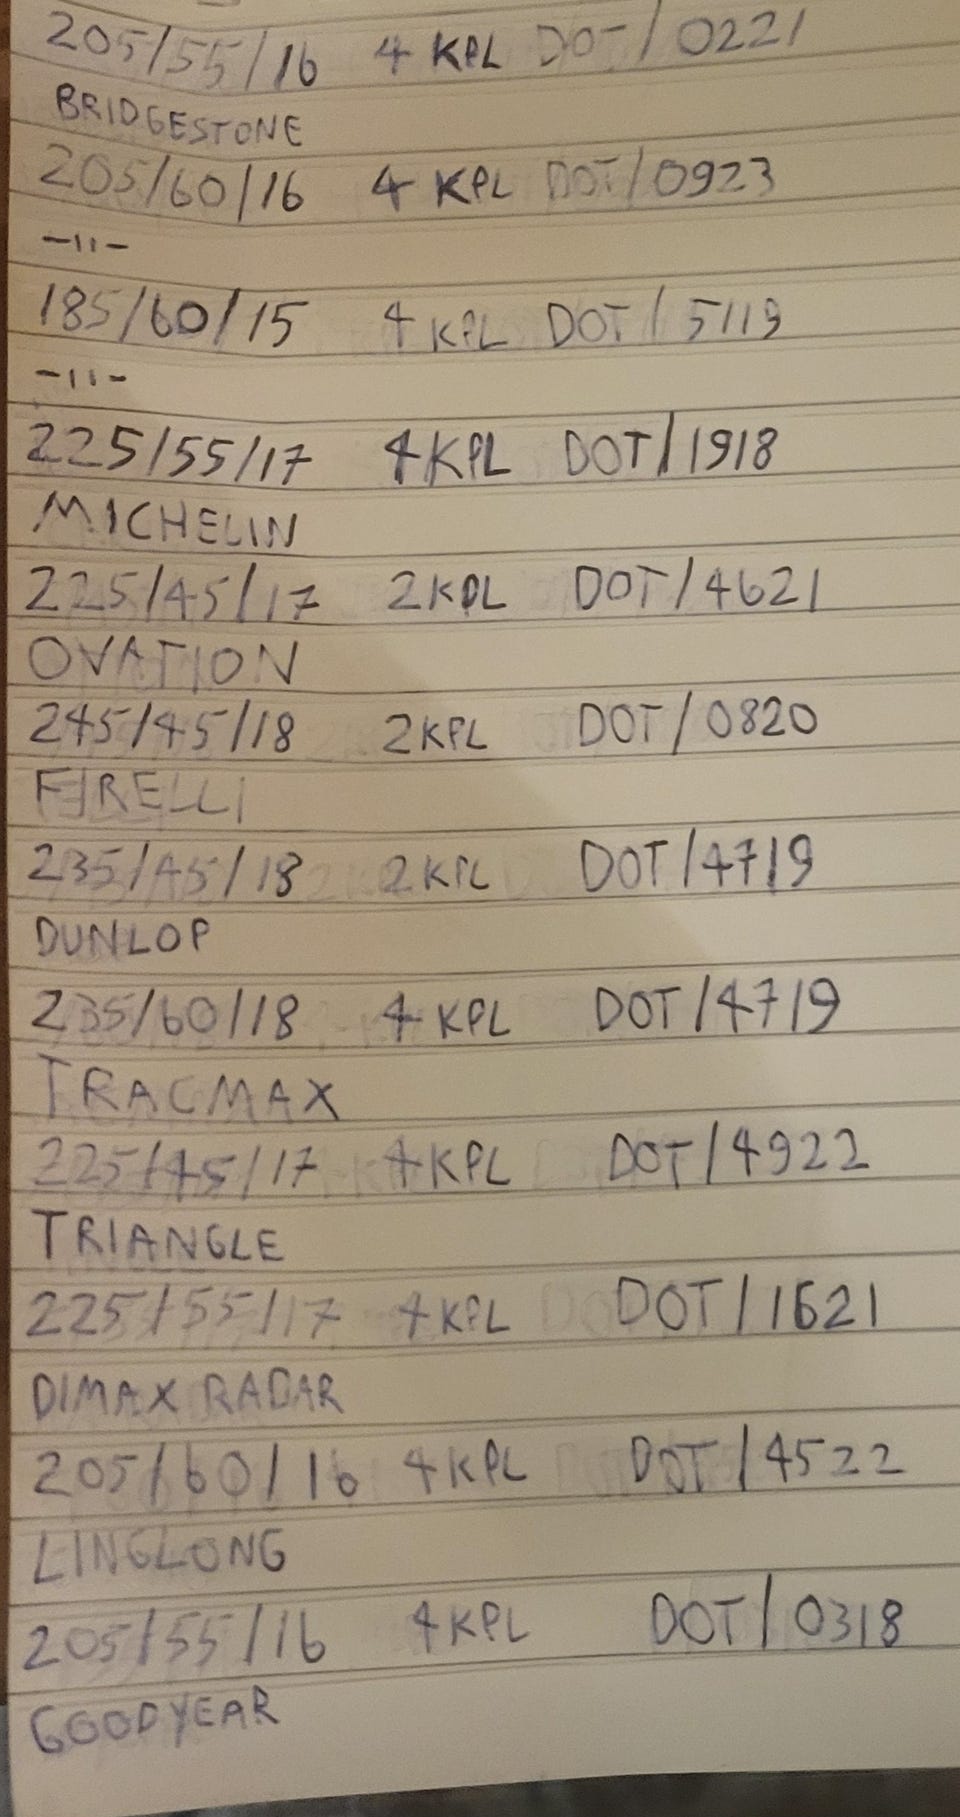 205/55/16 4 KPL DOT/0221
BRIDGESTONE
205/60/16 4 KPL DOT/0923
-11-
185/60/15 4 KPL DOT/5119
-11-
225/55/17 4 KPL DOT/1918
MICHELIN
225/45/17 2 KPL DOT/4621
OVATION
245/45/18 2 KPL DOT/0820
PIRELLI
235/45/18 2 KPL DOT/4719
DUNLOP
235/60/18 4 KPL DOT/4719
TRACMAX
225/45/17 4 KPL DOT/4922
TRIANGLE
225/55/17 4 KPL DOT/1621
DIMAX RADAR
205/60/16 4 KPL DOT/4522
LINGLONG
205/55/16 4 KPL DOT/0318
GOODYEAR